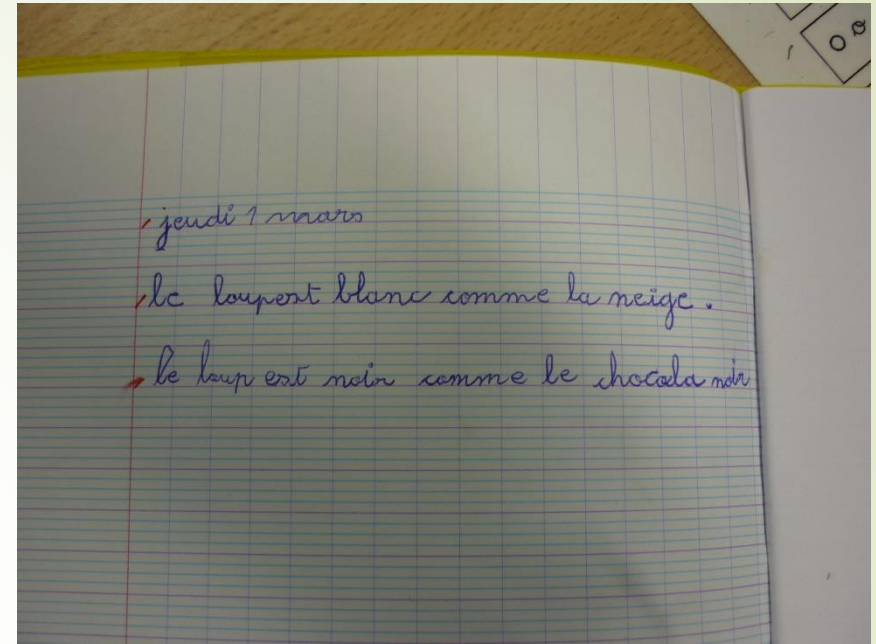 jeudi 1 mars
le loupest blanc comme la neige.
le loup est noir comme le chocola noir